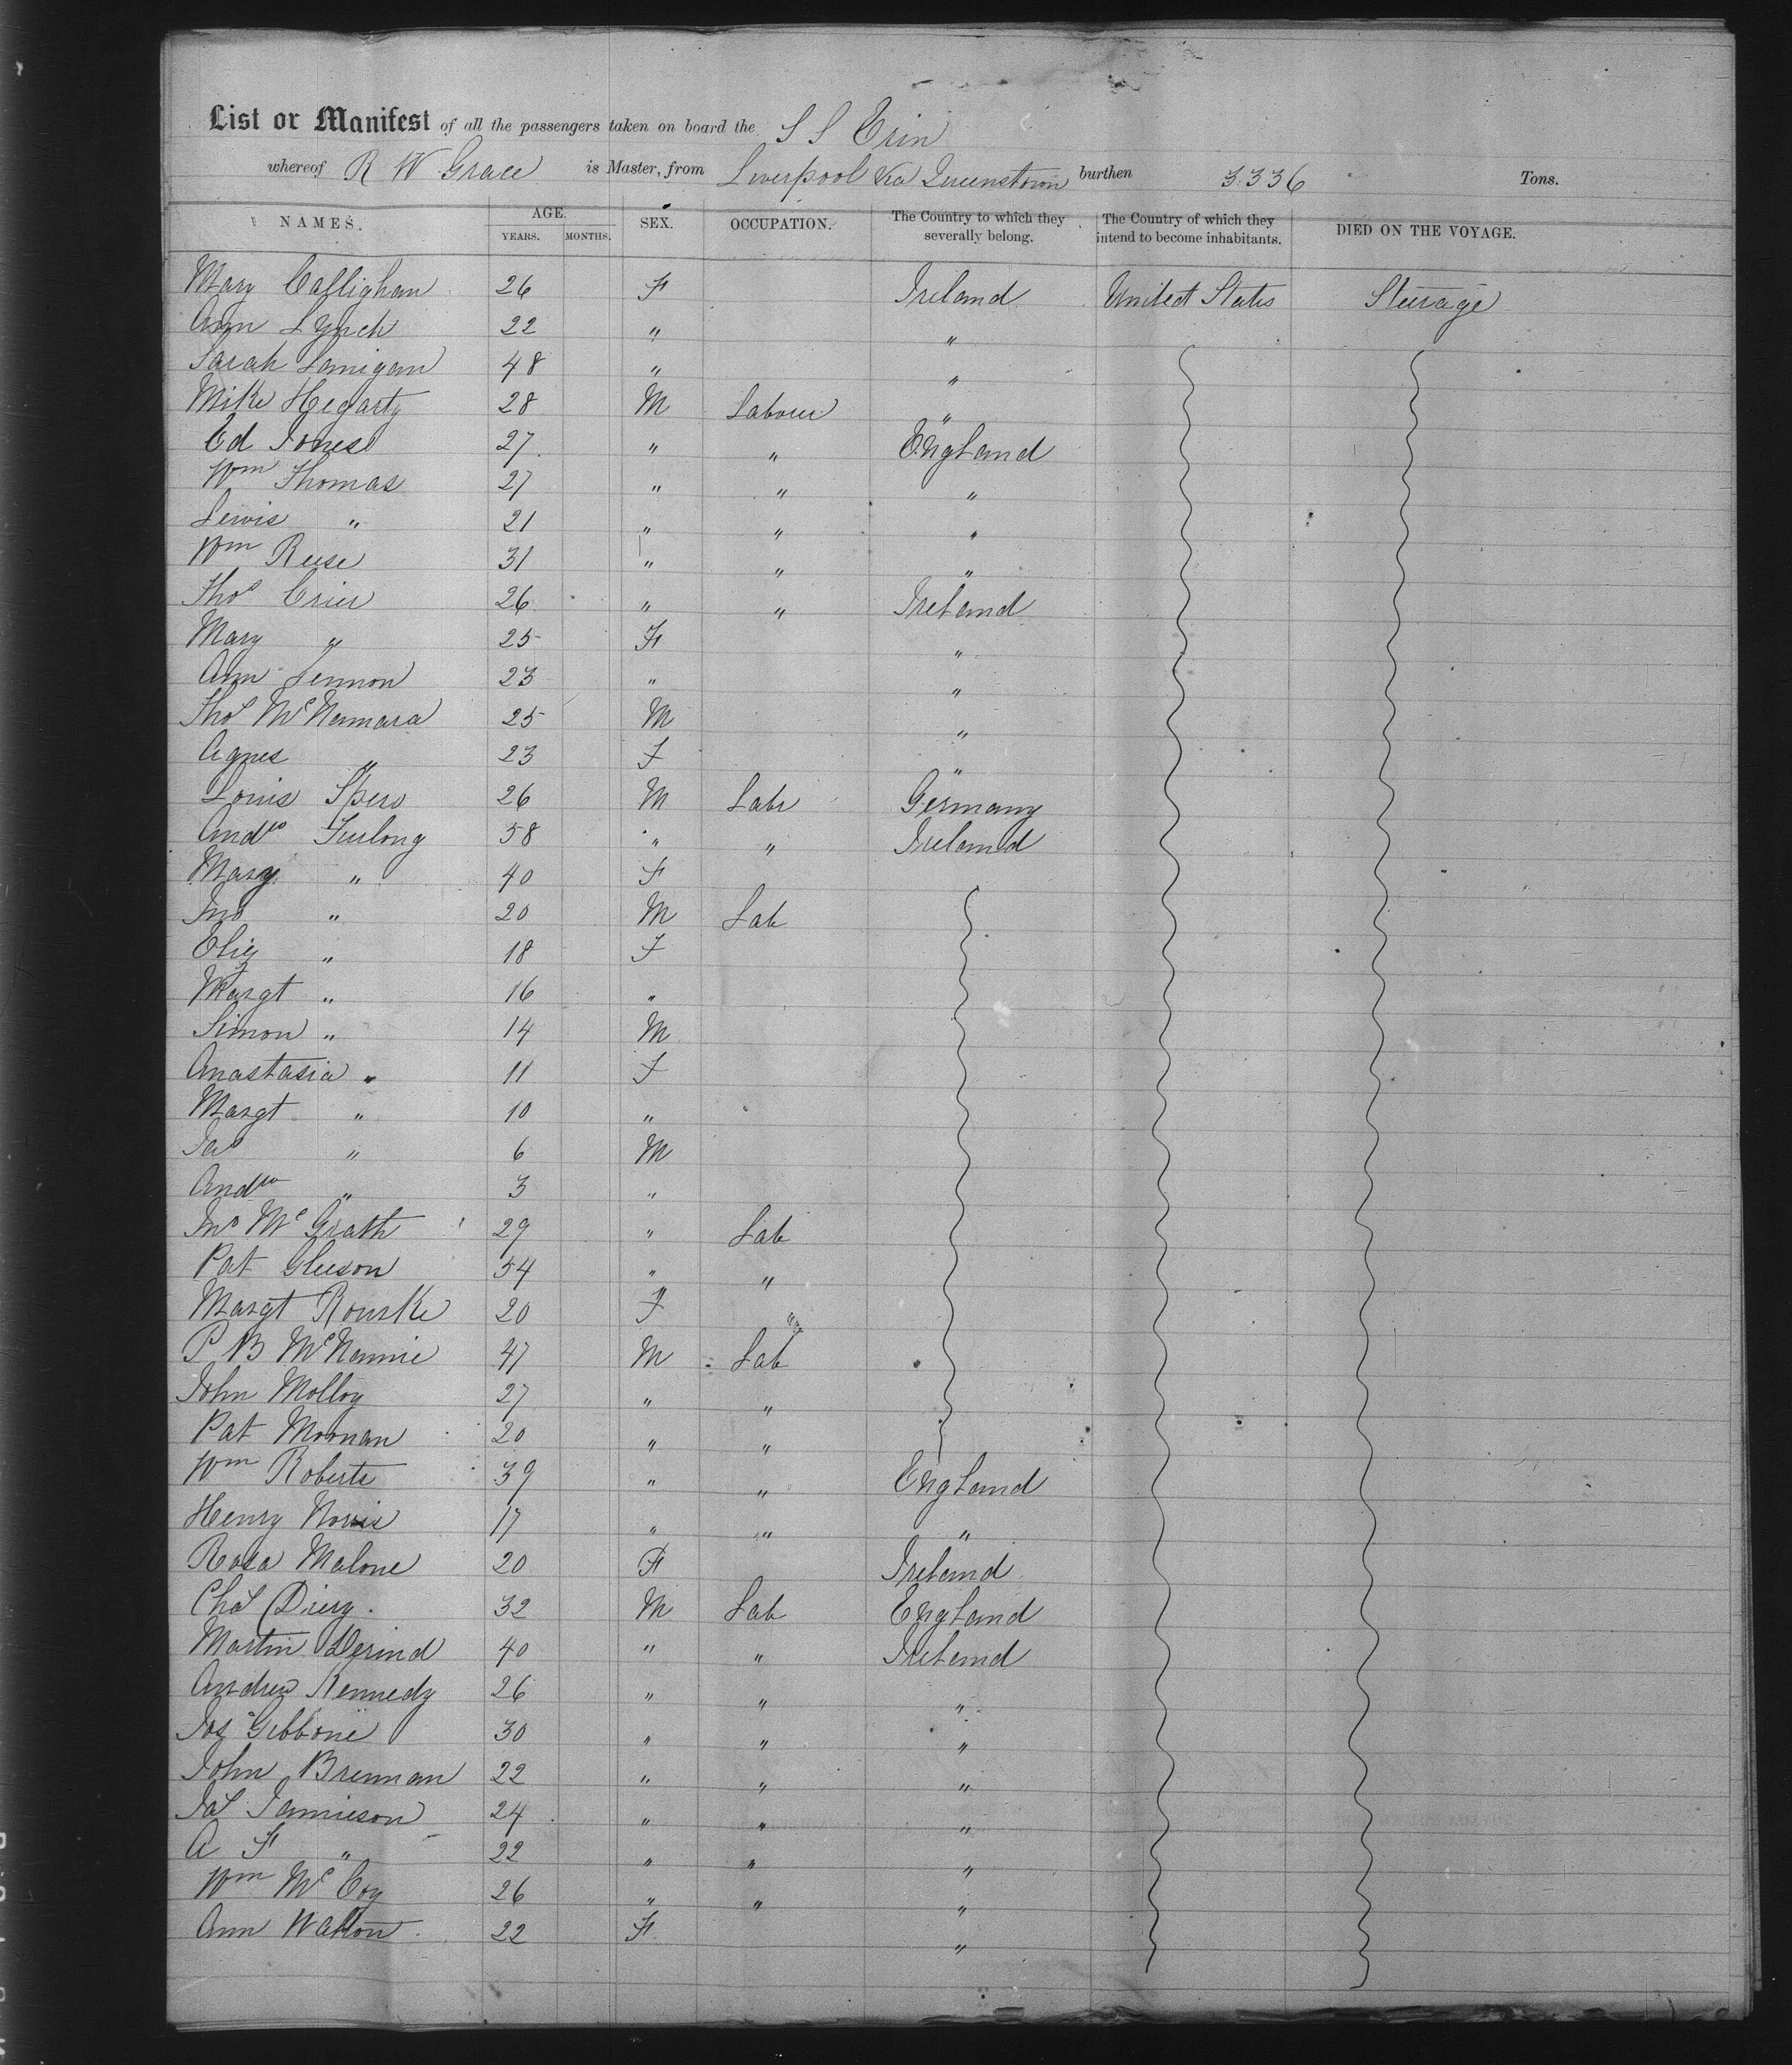 List or Manifest of all the passengers taken on board the S S Erin
whereof R W Grace is Master, from Liverpool via Queenstown burthen 3336 Tons.
NAMES. AGE. SEX. OCCUPATION. The Country to which they severally belong. The Country of which they intend to become inhabitants. DIED ON THE VOYAGE.
YEARS. MONTHS.
Mary Callighan 26 F Ireland United States Steerage
Ann Lynch 22 " "
Sarah Lanigan 48 " "
Mike Hegarty 28 M Labourer "
Ed Jones 27 " " England
Wm Thomas 27 " " "
Lewis " 21 " " "
Wm Reese 31 " " "
Thos Crier 26 " " Ireland
Mary " 25 F "
Ann Lennon 23 " "
Thos McNamara 25 M "
Agnes " 23 F "
Louis Spero 26 M Labr Germany
Andw Furlong 58 " " Ireland
Mary " 40 F
Jno " 20 M Lab
Eliz " 18 F
Margt " 16 "
Simon " 14 M
Anastasia " 11 F
Margt " 10 "
Jas " 6 M
Andw " 3 "
Jno McGrath 29 " Lab
Pat Gleeson 54 " "
Margt Rourke 20 F "
P B McNamie 47 M Lab
John Molloy 27 " "
Pat Moonan 20 " "
Wm Roberts 39 " " England
Henry Norris 17 " " "
Rosa Malone 20 F Ireland
Chas 32 M Lab England
Martin 40 " " Ireland
Andrew Kennedy 26 " " "
Jos Gibbone 30 " " "
John Brennan 22 " " "
Jas Jamieson 24 " " "
A F " 22 " " "
Wm McCoy 26 " " "
Ann Walton 22 F "